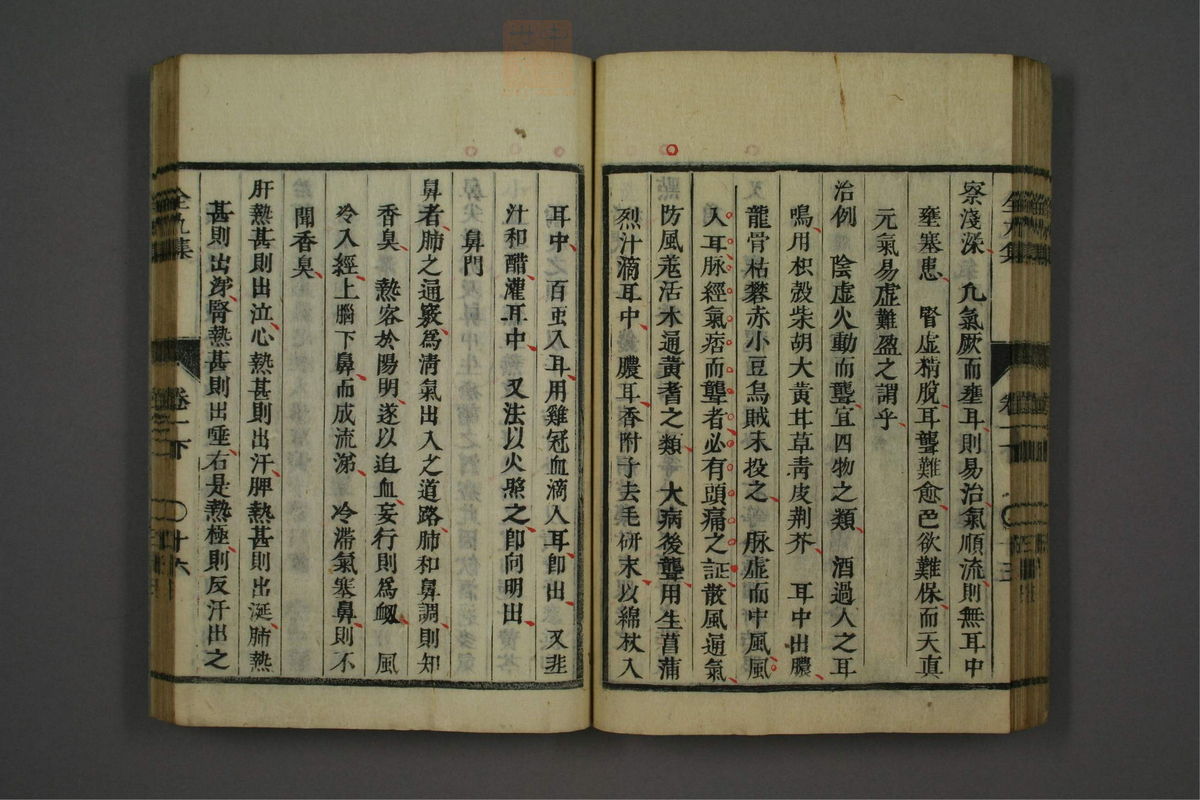 察淺深凢氣厥而壅耳則易治氣順流則無耳中
壅塞患 腎虛精脫耳聾難愈色欲難保而天真
元氣易虛難盈之謂乎
治例 陰虛火動而聾宜四物之類 酒過人之耳
鳴用枳殼柴胡大黃甘草靑皮荆芥 耳中出膿
龍骨枯礬赤小豆烏賊末投之 脉虛而中風風
入耳脉經氣痞而聾者必有頭痛之証散風通氣
防風羗活木通黃耆之類 大病後聾用生菖蒲
烈汁滴耳中 膿耳香附子去毛硏末以綿杖入
耳中 百虫入耳用雞冠血滴入耳卽出 又韭
汁和醋灌耳中 又法以火熈之卽向明出
鼻門
鼻者肺之通竅爲淸氣出入之道路肺和鼻調則知
香臭 熱客於陽明遂以迫血妄行則爲衂 風
冷入經上腦下鼻而成流涕 冷滯氣塞鼻則不
聞香臭
肝熱甚則出泣心熱甚則出汗脾熱甚則出涎肺熱
甚則出涕腎熱甚則出唾右是熱極則反汗出之
卷一下
十六